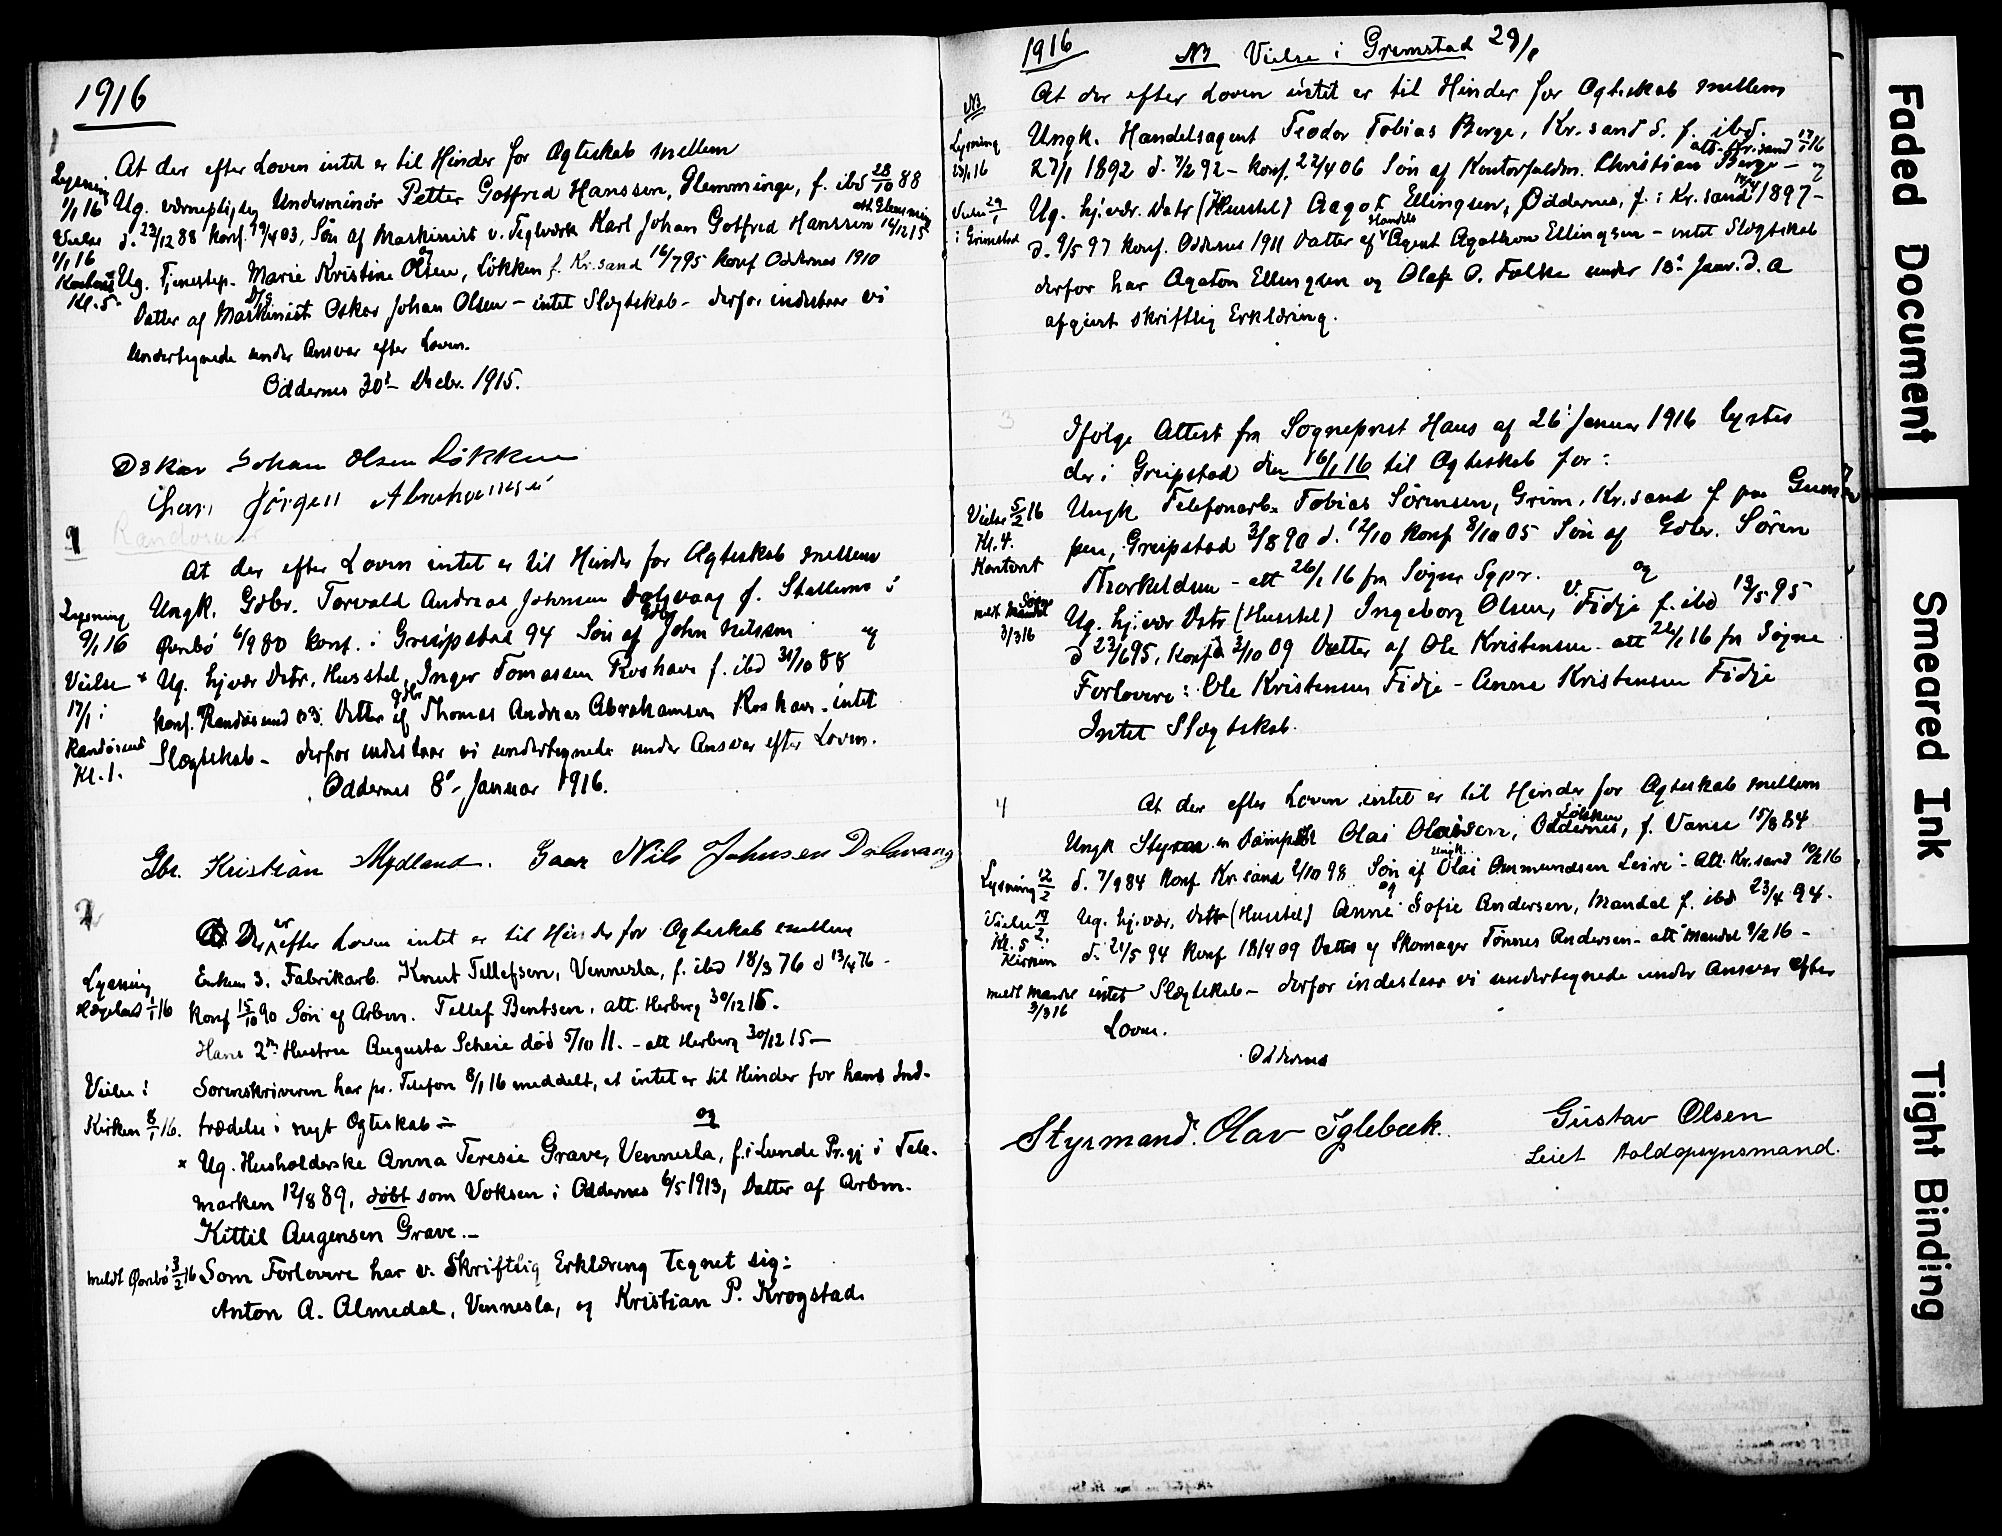 1916
1
At der efter Loven intet er til Hinder for Ægteskab mellem
Lysning 1/1 16
Vielse 1/1 16
Kontoret Kl. 5.
Ug. værnepligtig Underminör Petter Gotfred Hanssen, Glemminge, f. ibd 28/10 88
d. 23/12 88 konf. 19/4 03, Søn af Maskinist v. Teglværk Karl Johan Gotfred Hanssen att. Glemminge 16/12 15
og
Ug. Tjenestep. Marie Kristine Olsen, Løkken f. Kr.sand 16/7 95 konf Oddernes 1910
Datter af Maskinist Oskar Johan Olsen – intet Slægtskab – derfor indestaar vi
undertegnede under Ansvar efter Loven.
Oddernes 30t Decbr. 1915.
Oskar Johan Olsen Løkken
Jørgen Abrahamsen
1
Randøsund
At der efter Loven intet er til Hinder for Ægteskab mellem
Lysning 9/1 16
Vielse 17/1 i Randøsund Kl. 1.
Ungk. Gdbr. Torvald Andreas Johnsen Dalsvaag f. Stallemo i
Øvrebö 6/9 80 konf. i Greipstad 94 Søn af Gdbr John Nilssen og
* Ug. hj.vær Datr. Husstel, Inger Tomassen Roshavn f. ibd 31/10 88
konf. Randøsund 03. Datter af Gdbr Thomas Andreas Abrahamsen Roshavn – intet
Slægtskab – derfor indestaar vi undertegnede under Ansvar efter Loven.
Oddernes 8' Januar 1916.
Gbr. Kristian Mydland. Gaar Nils Johnsen Dalsvaag
2
Der er efter Loven intet er til Hinder for Ægteskab mellem
Lysning Hægeland 1/1 16
Enkem 3. Fabrikarb. Knut Tellefsen, Vennesla, f. ibd 18/3 76 d 13/4 76 –
konf 15/10 90 Søn af Arbm. Tellef Bentsen, att. Herberg 30/12 15.
Hans 2n Hustru Augusta Scheie død 5/10 11. – att Herberg 30/12 15 –
Vielse i Kirken 8/1 16.
Sorenskriveren har pr. Telefon 8/1 16 meddelt, at intet er til Hinder for hans Ind-
trædelse i nyt Ægteskab –
og
* Ug. Husholderske Anna Teresie Grave, Vennesla, f. i Lunde Pr.gj i Tele-
marken 12/8 89, døbt som Voksen i Oddernes 6/5 1913, Datter af Arbm.
Kittil Augensen Grave. –
meldt Øvrebö 3/2 16
Som Forlovere har v. Skriftlig Erklæring tegnet sig:
Anton A. Almedal, Vennesla, og Kristian P. Krogstad.
1916 NB Vielse i Grimstad 29/1
At der efter Loven intet er til Hinder for Ægteskab mellem
NB
Lysning 23/1 16
Vielse 29/1 i Grimstad
Ungk. Handelsagent Teodor Tobias Berge, Kr.sand S. f. ibd.
27/1 1892 d. 7/2 92 – konf. 22/4 06 Søn af Kontorfuldm. Christian Berge – att. Kr.sand 17/1 16 og
Ug. hj.vær. Datr (Husstel) Aagot Ellingsen, Oddernes, f. i Kr.sand 14/4 1897 –
d. 9/5 97 konf. Oddernes 1911 Datter af Handels Agent Agathon Ellingsen – intet Slægtskab
derfor har Agaton Ellingsen og Olaf O. Falke under 13' Janr. d. A
afgivet skriftlig Erklæring.
3
Ifølge Attest fra Sogneprest Haus af 26' Januar 1916 lystes
der i Greipstad den 16/1 16 til Ægteskab for:
Vielse 5/2 16 Kl. 4. Kontoret
meldt Søgne 3/3 16
Ungk Telefonarb. Tobias Sørensen, Grim, Kr.sand f paa
pen, Greipstad 3/8 90 d. 12/10 konf 8/10 05 Søn af Gdbr. Søren
Thorkildsen – att 26/1 16 fra Søgne Sgpr. og
Ug. hj.vær Datr (Husstel) Ingeborg Olsen, V. Fidje f. ibd 13/5 95
d 23/6 95, konf 3/10 09 Datter af Ole Kristensen – att 26/1 16 fra Søgne
Forlovere: Ole Kristensen Fidje – Anne Kristensen Fidje
Intet Slægtskab.
4
At der efter Loven intet er til Hinder for Ægteskab mellem
Lysning 12/2
Vielse 19/2 Kl. 5 i Kirken
meldt Mandal 3/3 16
Ungk Styrm. Olai Olaisen, Løkken Oddernes, f. Vanse 15/8 84
d. 7/9 84 konf Kr.sand 2/10 98 Søn af Ungk. Olai Ommundsen Leire – Att. Kr.sand 10/2 16
og
Ug. hj.vær. Datr (Husstel) Anne Sofie Andersen, Mandal f. ibd 23/4 94.
d. 21/5 94 konf 18/4 09 Datter af Skomager Tönnes Andersen – att Mandal 9/2 16 –
intet Slægtskab – derfor indestaar vi undertegnede under Ansvar efter
Loven.
Oddernes
Styrmand. Olav Iglebæk.
Gustav Olsen
Leiet Toldopsynsmand.
Faded Document
Smeared Ink
Tight Binding